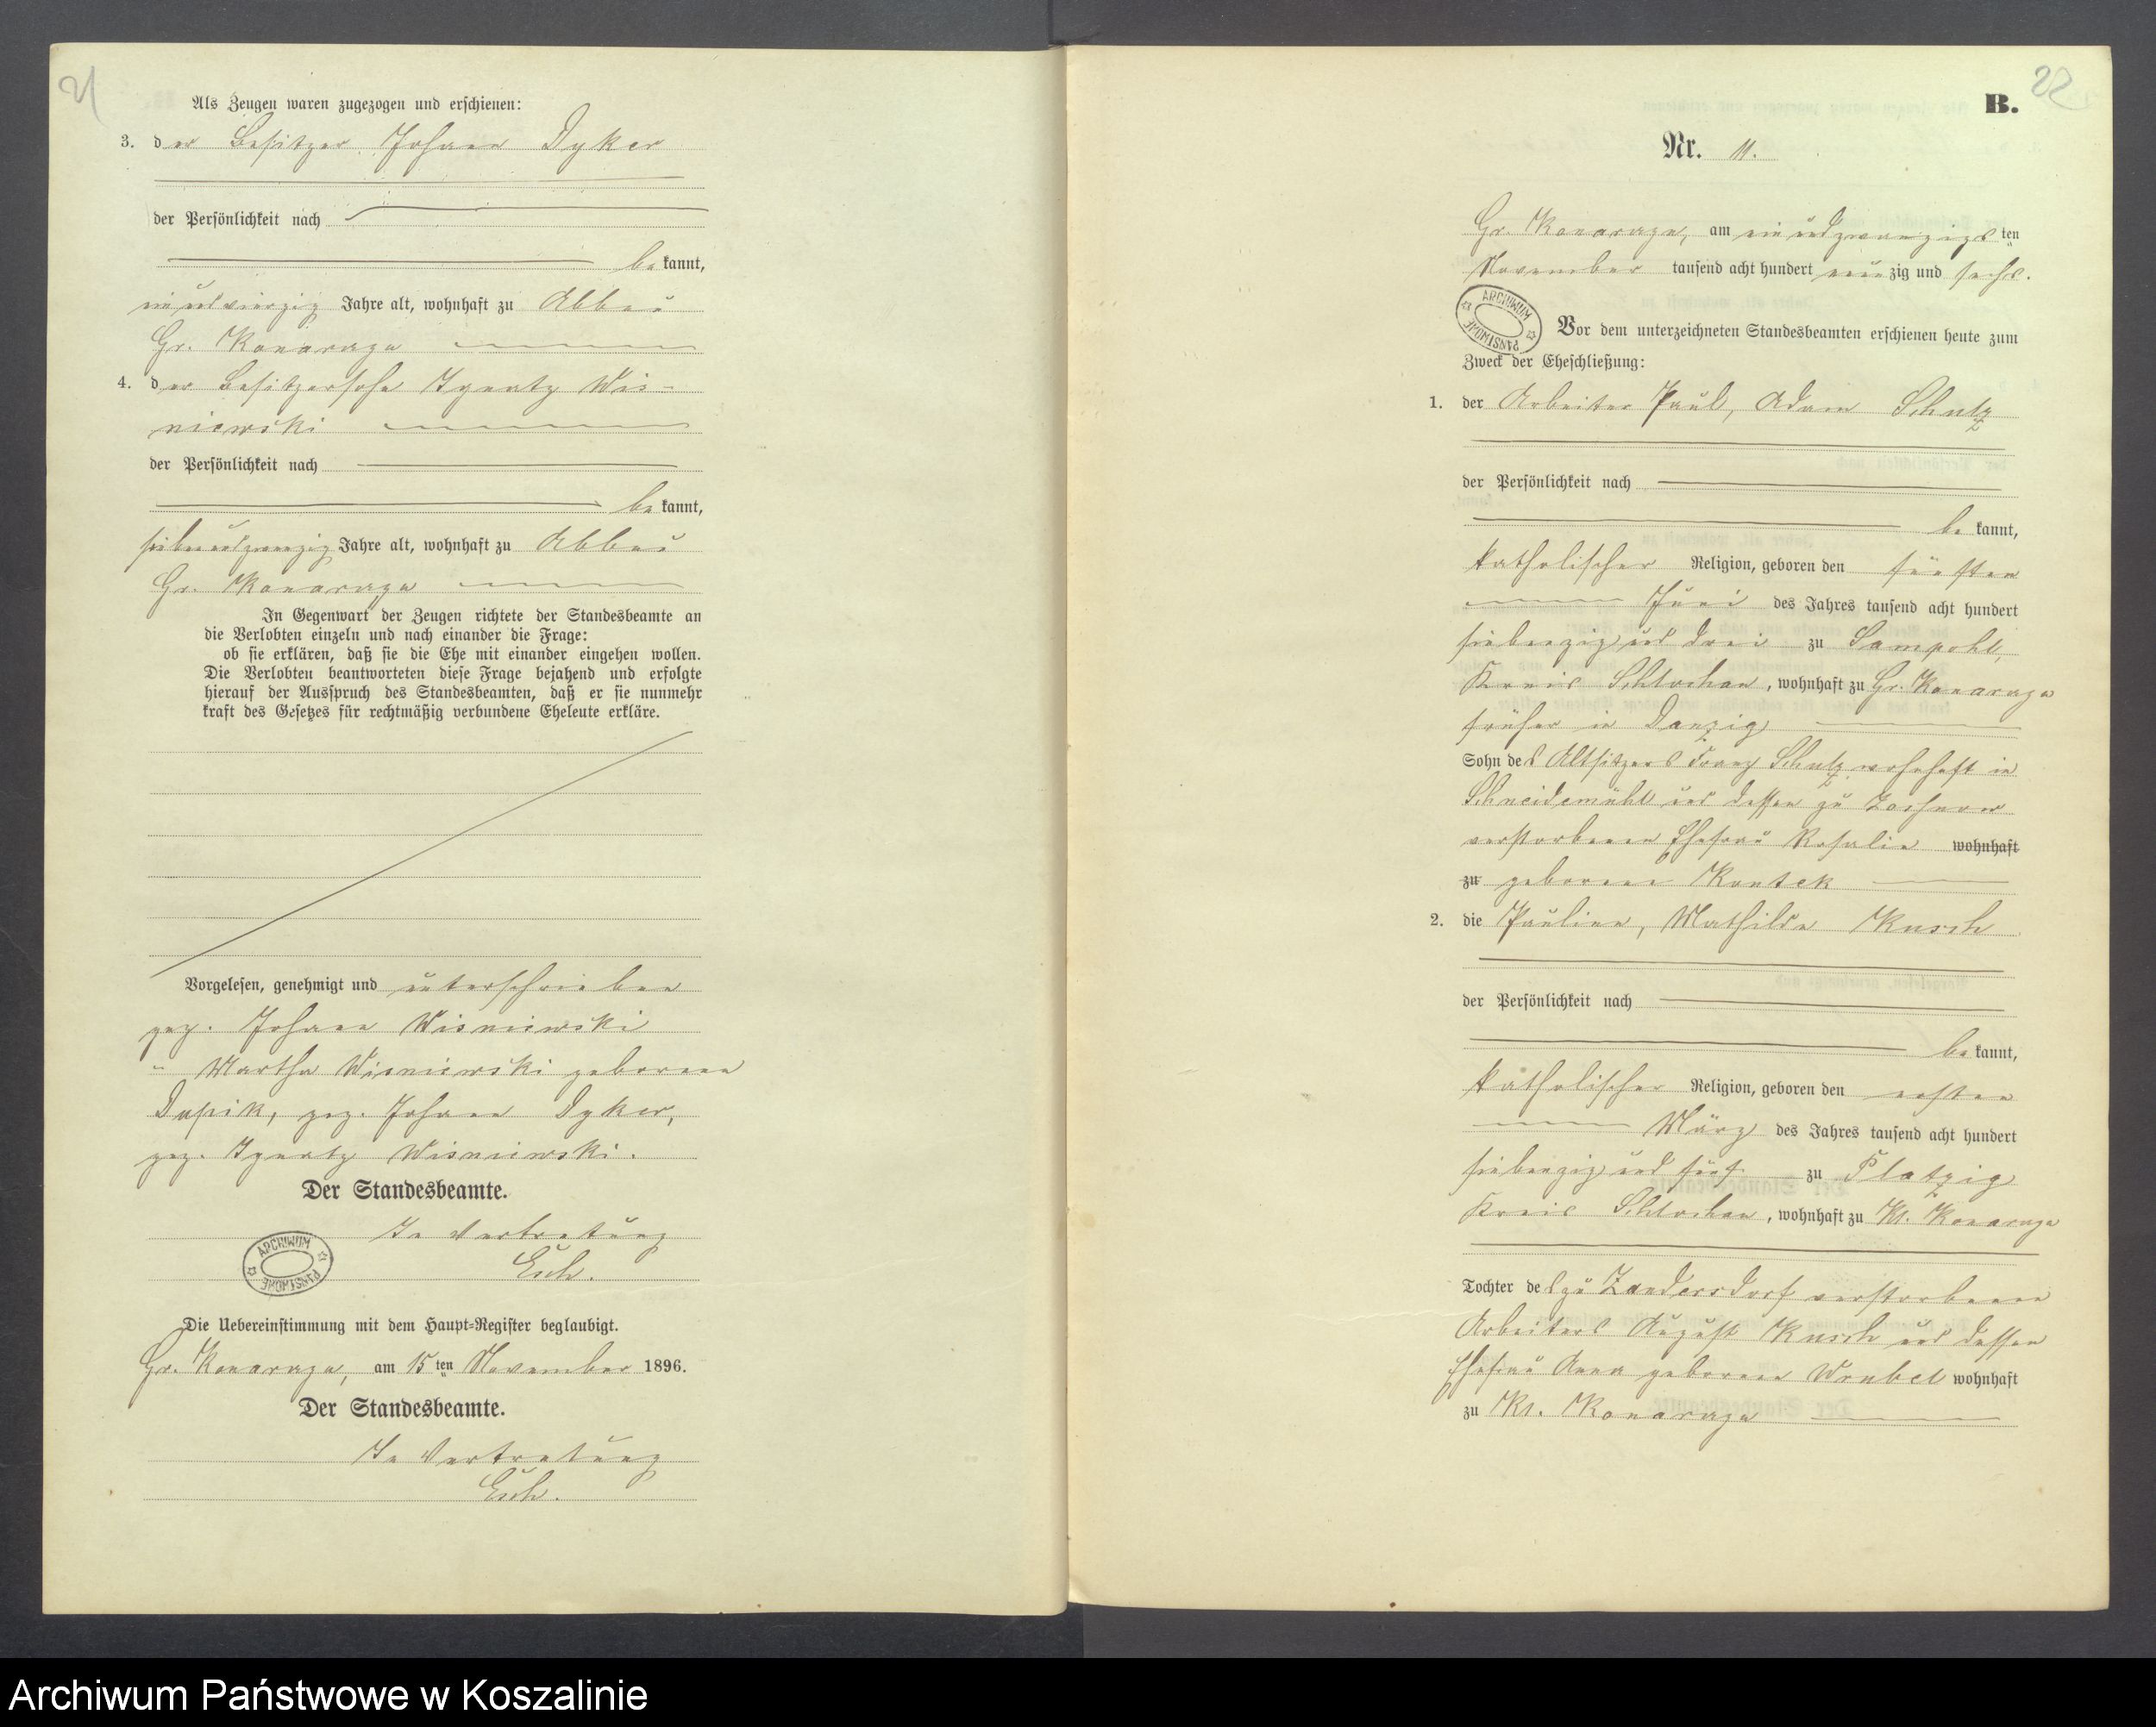 21
Als Zeugen waren zugezogen und erschienen:
3. der Besitzer Johann Dyker
der Persönlichkeit nach
bekannt,
einundvierzig Jahre alt, wohnhaft zu Abbau
Gr. Konarzyn
4. der Besitzersohn Ignatz Wis-
niewski
der Persönlichkeit nach
bekannt,
siebenundzwanzig Jahre alt, wohnhaft zu Abbau
Gr. Konarzyn
In Gegenwart der Zeugen richtete der Standesbeamte an
die Verlobten einzeln und nach einander die Frage:
ob sie erklären, daß sie die Ehe mit einander eingehen wollen.
Die Verlobten beantworteten diese Frage bejahend und erfolgte
hierauf der Ausspruch des Standesbeamten, daß er sie nunmehr
kraft des Gesetzes für rechtmäßig verbundene Eheleute erkläre.
Vorgelesen, genehmigt und unterschrieben
gez. Johann Wisniewski
" Martha Wisniewski geborene
Dupik, gez. Johann Dyker,
gez. Ignatz Wisniewski.
Der Standesbeamte.
In Vertretung
ARCHIWUM PAŃSTWOWE
Die Uebereinstimmung mit dem Haupt-Register beglaubigt.
Gr. Konarzyn, am 15ten November 1896.
Der Standesbeamte.
In Vertretung
22
B.
Nr. 11.
Gr. Konarzyn, am einundzwanzigsten
November tausend acht hundert neunzig und sechs.
ARCHIWUM PAŃSTWOWE
Vor dem unterzeichneten Standesbeamten erschienen heute zum
Zweck der Eheschließung:
1. der Arbeiter Paul, Adam Schulz
der Persönlichkeit nach
bekannt,
katholischer Religion, geboren den fünften
Juni des Jahres tausend acht hundert
siebenzig und drei zu Sampohl,
Kreis Schlochau, wohnhaft zu Gr. Konarzyn
früher in Danzig
Sohn des Altsitzers Franz Schulz wohnhaft in
Schneidemühl und dessen zu
verstorbenen Ehefrau Rosalie wohnhaft
zu geborene Kontek
2. die Pauline, Mathilde Kusch
der Persönlichkeit nach
bekannt,
katholischer Religion, geboren den ersten
März des Jahres tausend acht hundert
siebenzig und fünf zu Platzig
Kreis Schlochau, wohnhaft zu Kl. Konarzyn
Tochter des zu Zandersdorf verstorbenen
Arbeiters August Kusch und dessen
Ehefrau Anna geborene Wrubel wohnhaft
zu Kl. Konarzyn
Archiwum Państwowe w Koszalinie